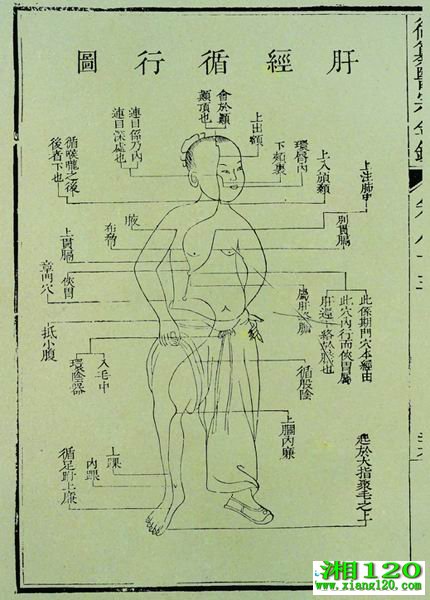 御纂醫宗金鑑
肝經循行圖
會於顚
顚頂也
上出額
下頰裏
環唇內
上入頏顙
上注肺中
連目係乃內
連目深處也
循喉嚨之後
後者下也
腋
布脅
別貫膈
上貫膈
章門穴
俠胃
抵小腹
環陰器
入毛中
屬肝絡膽
此係期門穴本經由
此穴內行而俠胃屬
肝
絡
也
循股陰
上膕內廉
起於大指聚毛之上
上踝
內踝
循足跗上廉
湘120
www.xiang120.com